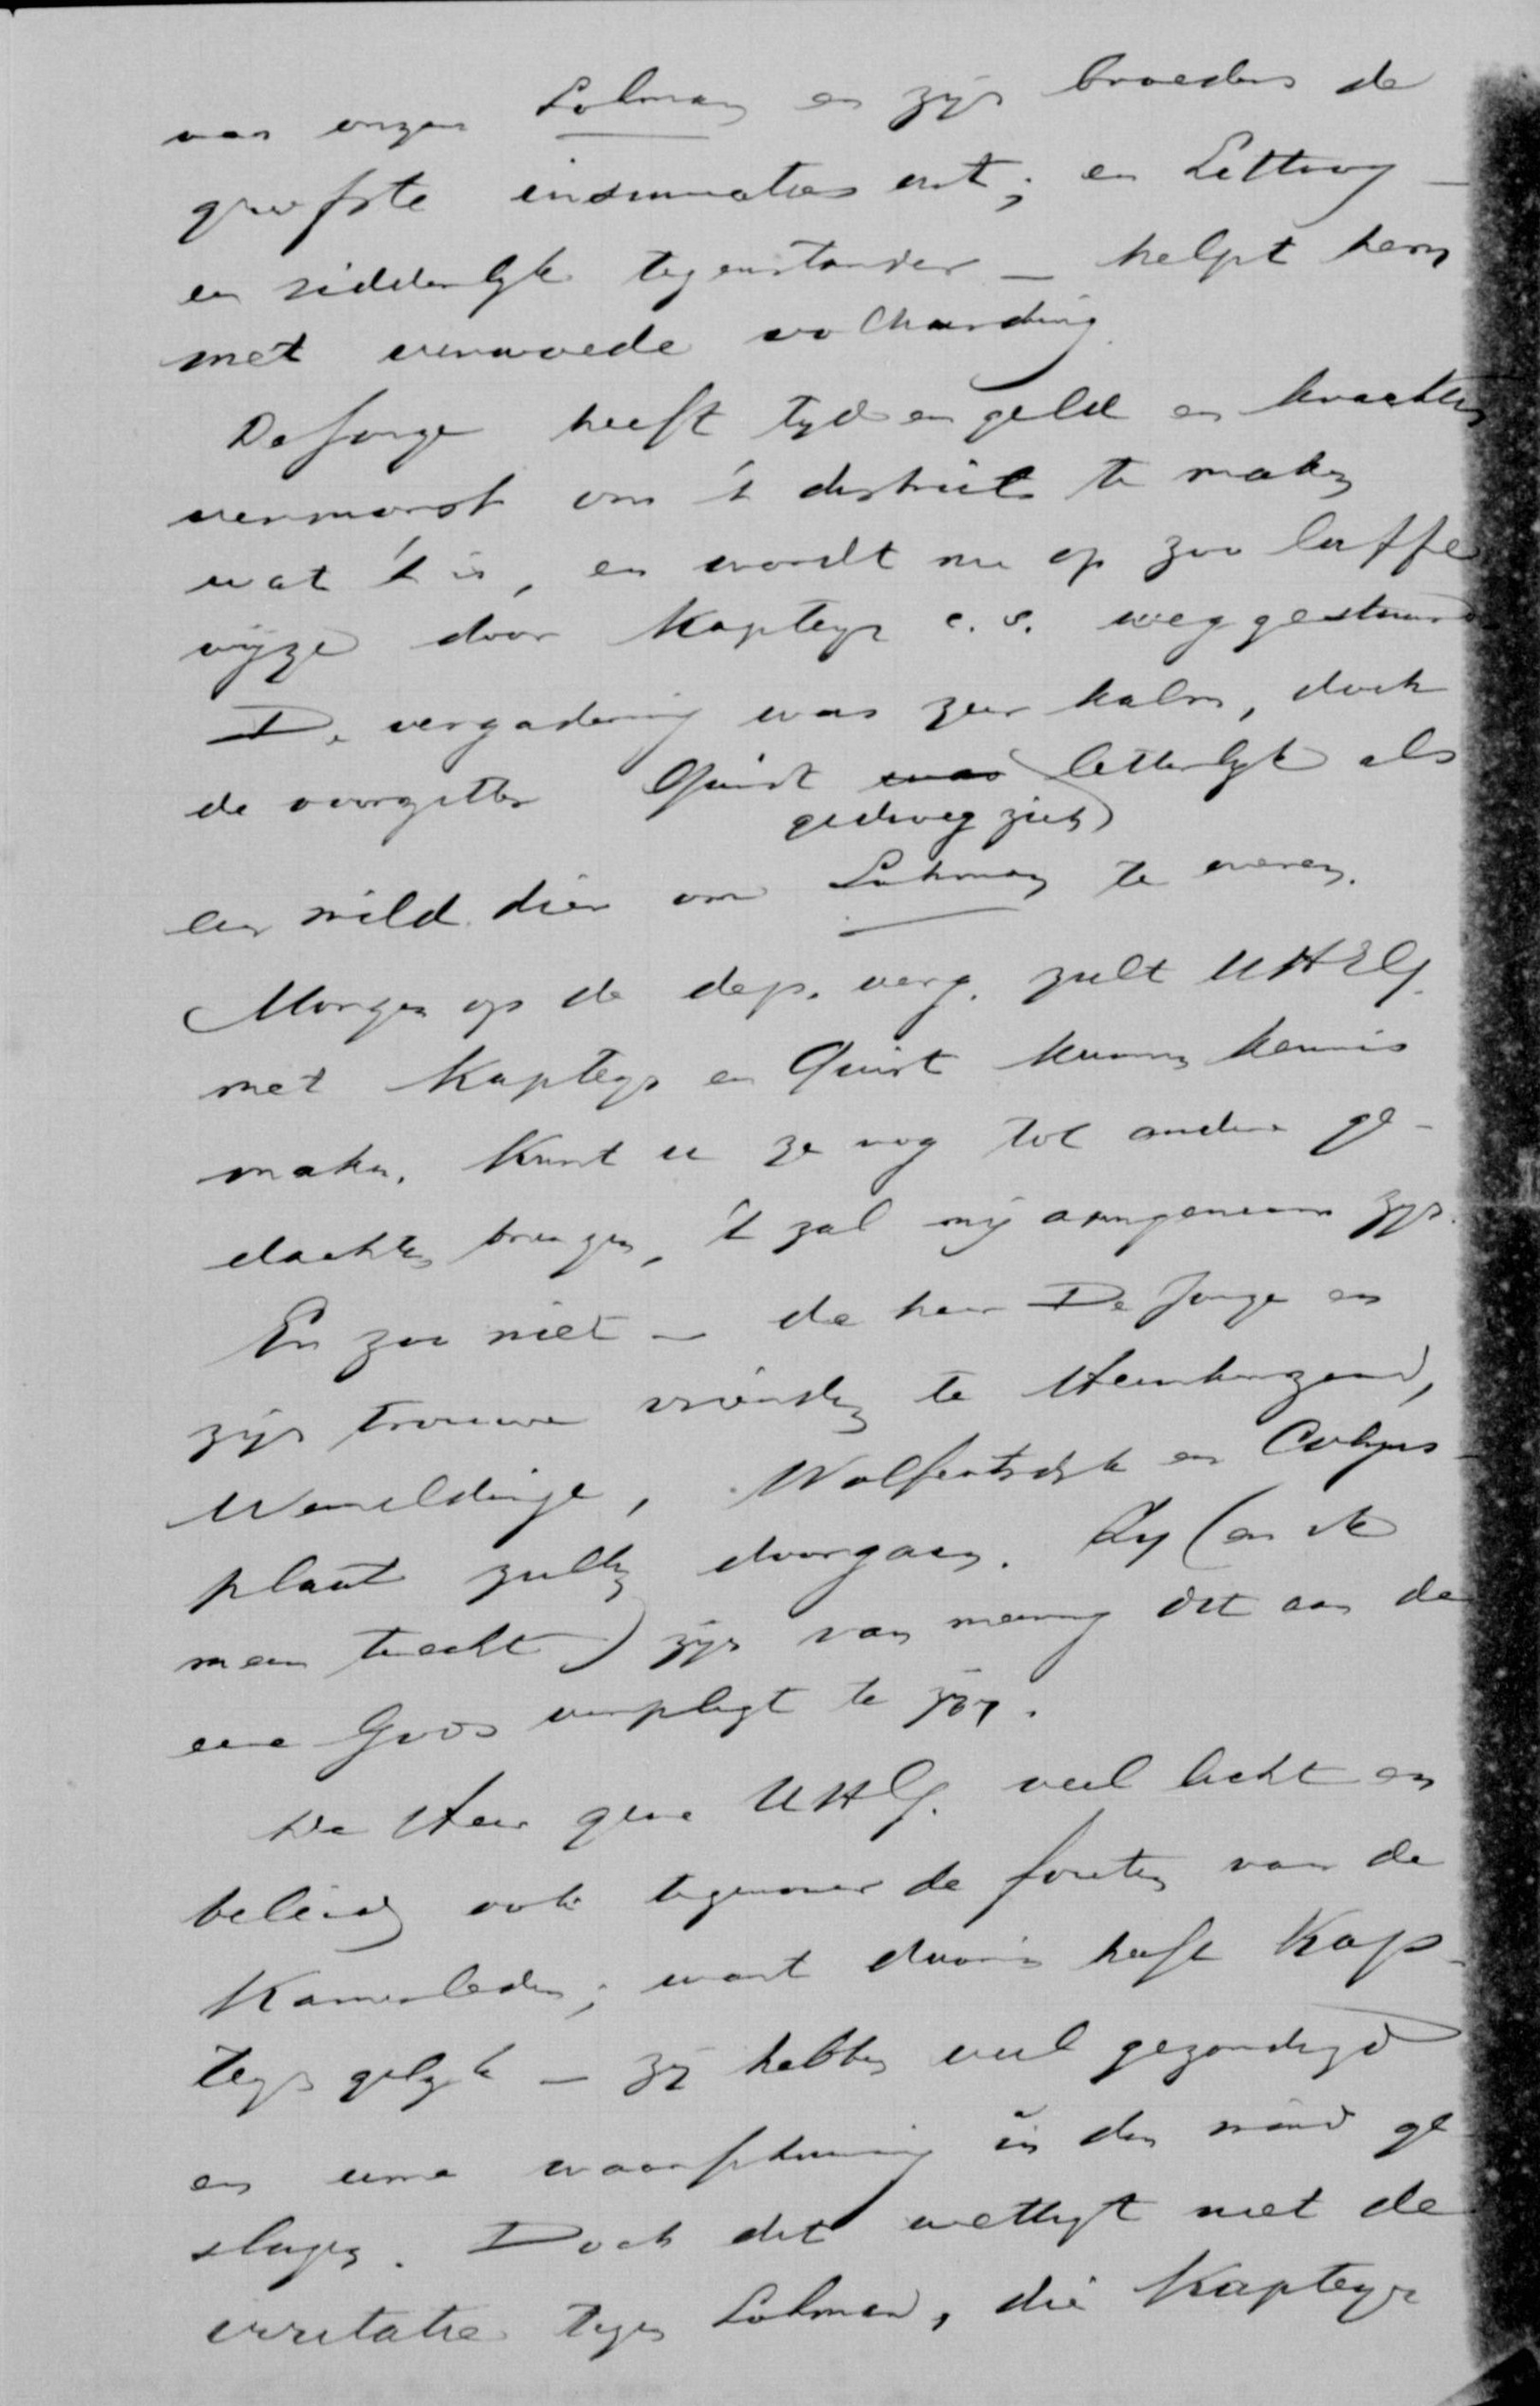 van onzen Lohman en zijn broeders de
grofste insinuaties uit; en Lettooy –
een ridderlijk tegenstander – helpt hem
met verwoede volharding.
De Jonge heeft tijd en geld en krachten
vermorst om 't district te maken
wat 't is, en wordt nu op zoo laffe
wijze door Kapteyn c.s. weggestuurd
De vergadering was zeer kalm, doch
de voorzitter Quist was letterlijk als
gedroeg zich
een wild dier om Lohman te weren.
Morgen op de dep. verg. zult UHEG.
met Kapteyn en Quist kunnen kennis
maken. Kunt u ze nog tot andere ge-
dachten brengen, 't zal mij aangenaam zijn.
En zoo niet – de heer De Jonge en
zijn trouwe vrienden te Heinkenszand,
Wemeldinge, Wolfertsdijk en Colijns-
plaat zullen doorgaan. Zij (en ik
meen terecht) zijn van mening dit aan de
eere Gods verpligt te zijn.
De Heer geve UHG. veel licht en
beleid, ook tegenover de fouten van de
Kamerleden; want daarin heeft Kap-
teyn gelijk – zij hebben veel gezondigd
en uwe waarschuwing in den wind ge-
slagen. Doch dit wettigt niet de
irritatie tegen Lohman, die Kapteyn